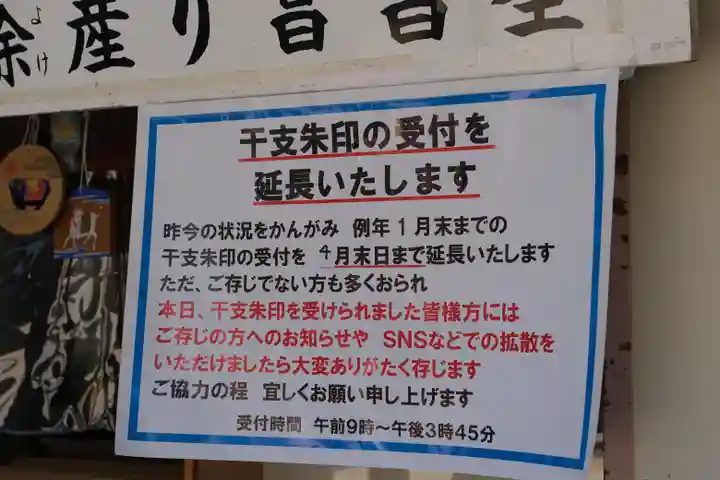 除産り旨目屋
よけ
干支朱印の受付を
延長いたします
昨今の状況をかんがみ 例年1月末までの
干支朱印の受付を 4月末日まで延長いたします
ただ、ご存じでない方も多くおられ
本日、干支朱印を受けられました皆様方には
ご存じの方へのお知らせや SNSなどでの拡散を
いただけましたら大変ありがたく存じます
ご協力の程 宜しくお願い申し上げます
受付時間 午前9時～午後3時45分